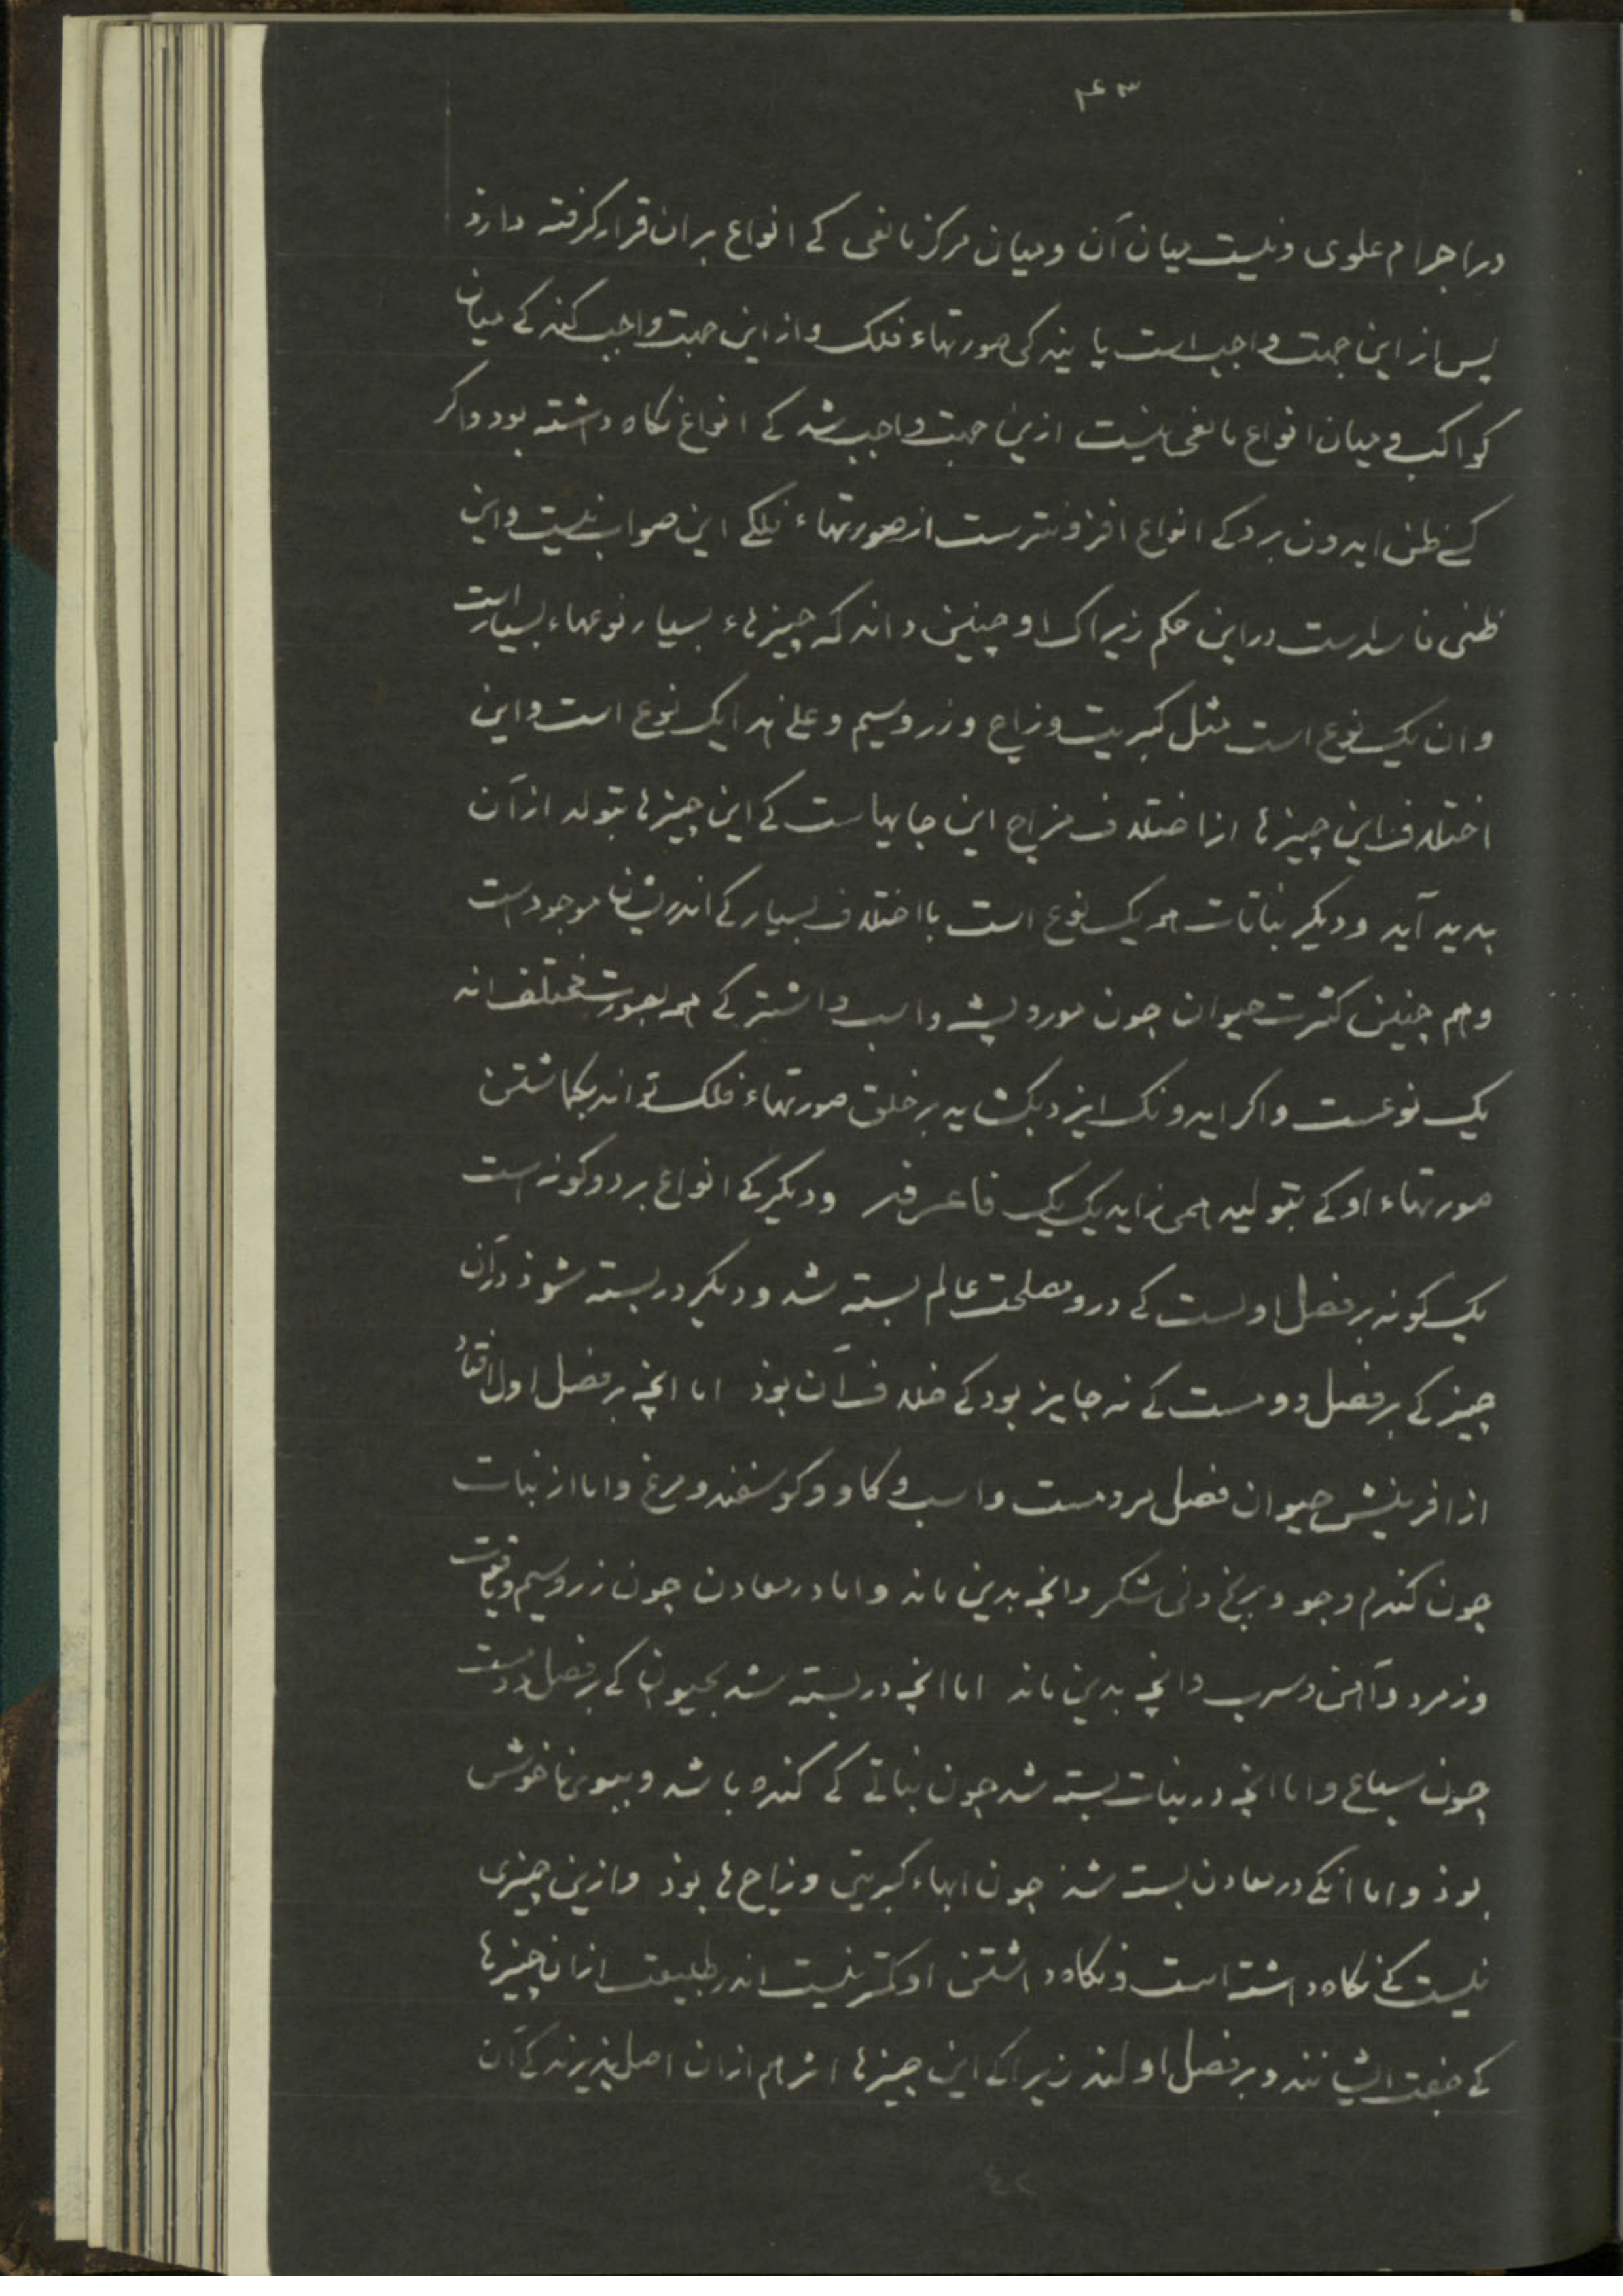 ۴۳
در اجرام علوی و نیست میان آن و میان مرکز مانعی کے انواع بران قرار کرفته دارذ
پس از این جهت واجب است پایندکی صورتهاء فلک و از این جهت واجب کند کے میان
کواکب و میان انواع مانعی نیست ازین جهت واجب شد کے انواع نکاه داشته بود واکر
کسے ظن ایدون برد کے انواع افزونترست از صورتهاء فلکے این صواب نیست و این
ظنی فاسدست در این حکم زیراک او چنین داند که چیزهاء بسیار نوعهاء بسیارست
و ان یک نوع است مثل کبریت و زاج و زر و سیم و علے هذا یک نوع است و این
اختلاف این چیزها از اختلاف مزاج این جایهاست کے این چیزها بتولد از آن
پدید آید و دیکر نباتات همه یک نوع است با اختلاف بسیار کے اندریشان موجودست
و هم چنین کثرت حیوان چون مور و پشه و اسب و اشتر کے همه بصورت مختلف اند
یک نوعست و اکر ایدونک ایزد بر خلق صورتهاء فلک تواند
صورتهاء او کے بتولید همی زاید یک یک و دیکر کے انواع بر دو کونه است
یک کونه بر فصل اولست کے درو مصلحت عالم بسته شد و دیکر در بسته شوذ در آن
چیز کے بر فصل دومست کے نه جایز بود کے خلاف آن بوذ اما انچه بر فصل اول افتاد
از افرینش حیوان فصل مردمست و اسب و کاو و کوسفند و مرغ و اما از نبات
چون کندم و جو و برنج و نی شکر و انچه بدین ماند و اما در معادن چون زر و سیم و یاقوت
و زمرد و آهن و سرب و انچه بدین ماند اما انچه در بسته شد بحیوان کے بر فصل دومست
چون سباع و اما انچه در نبات بسته شد چون نباتے کے کنده باشد و ببوی ناخوش
بوذ و اما انکے در معادن بسته شذ چون ابهاء کبریتی و زاج ها بوذ و ازین چیزی
نیست کے نکاه داشته است و نکاه داشتن او کمتر نیست اندر طبیعت از ان چیزها
کے صفت ایشانند و بر فصل اولند زیرا کے این چیزها اثر هم از ان اصل پذیرند کے آن